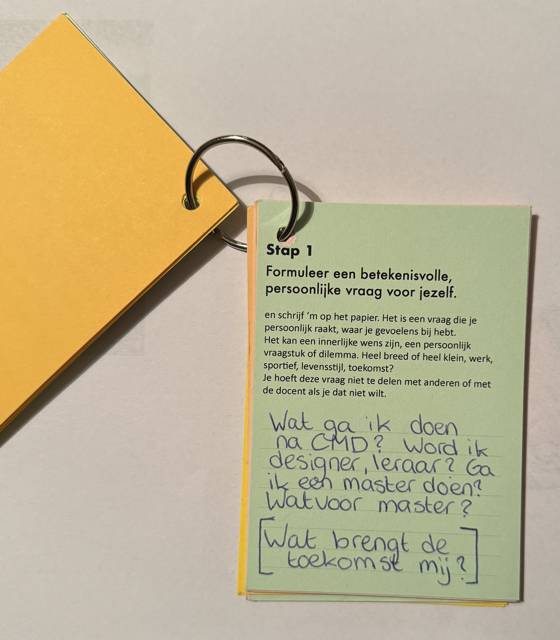 Stap 1
Formuleer een betekenisvolle,
persoonlijke vraag voor jezelf.
en schrijf 'm op het papier. Het is een vraag die je
persoonlijk raakt, waar je gevoelens bij hebt.
Het kan een innerlijke wens zijn, een persoonlijk
vraagstuk of dilemma. Heel breed of heel klein, werk,
sportief, levensstijl, toekomst?
Je hoeft deze vraag niet te delen met anderen of met
de docent als je dat niet wilt.
Wat ga ik doen
na CMD? Word ik
designer, leraar? Ga
ik een master doen?
Watvoor master?
[Wat brengt de
toekomst mij?]